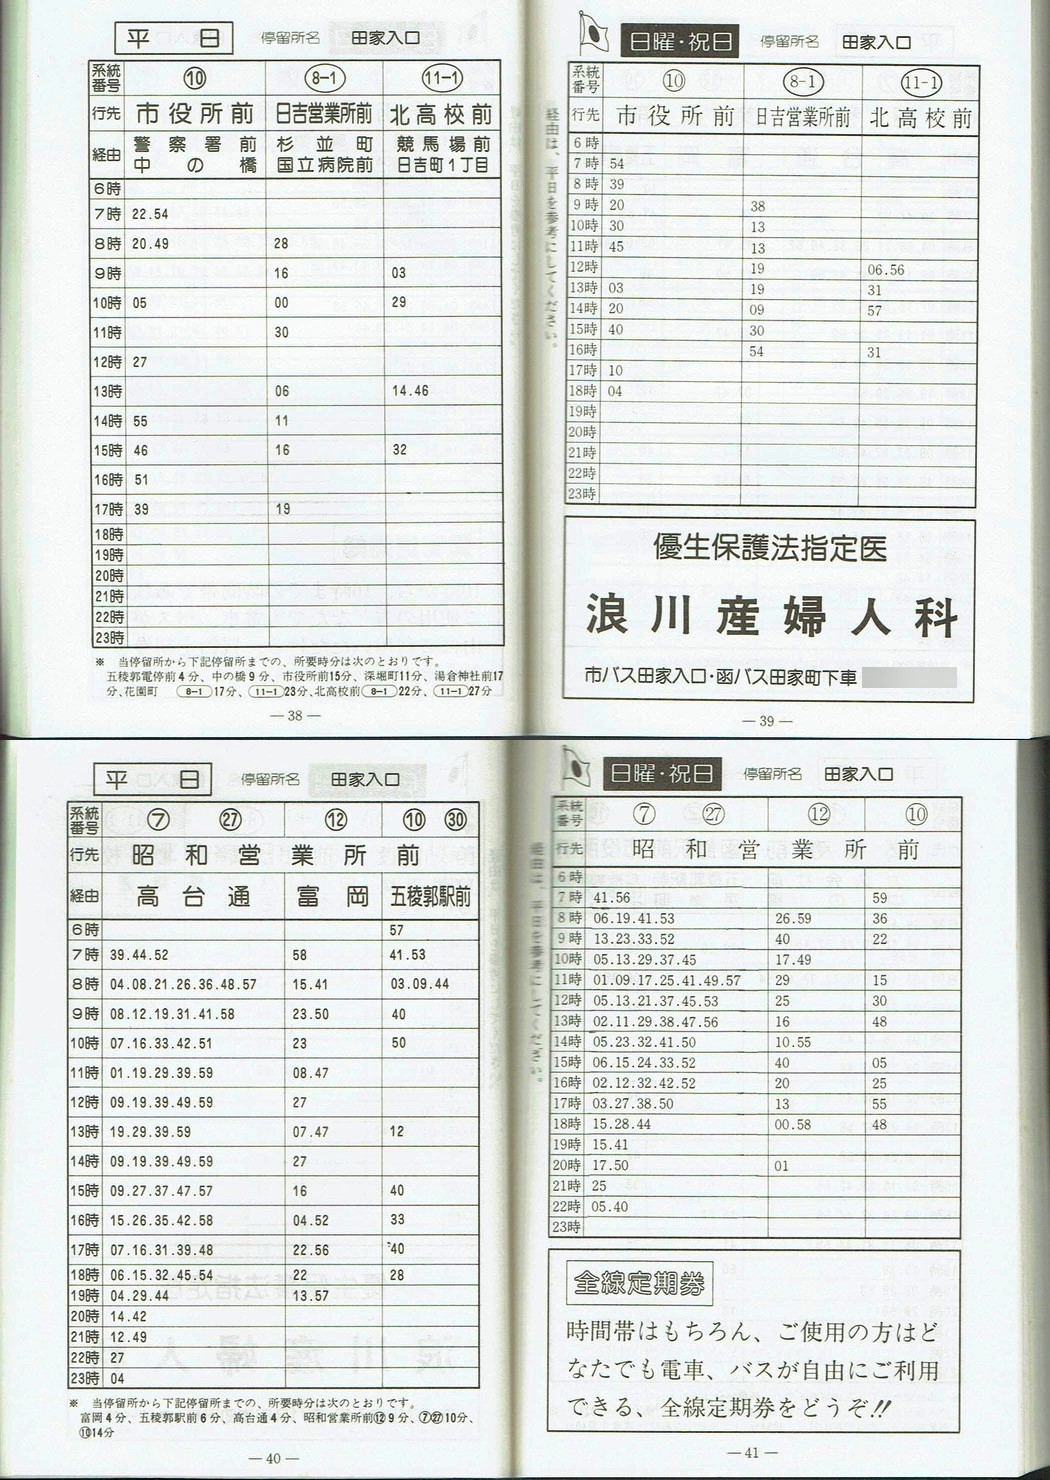 平　日　停留所名　田家入口
系統番号　⑩　8-1　11-1
行先　市役所前　日吉営業所前　北高校前
経由　警察署前 中の橋　杉並町 国立病院前　競馬場前 日吉町1丁目
6時
7時　22.54
8時　20.49　28
9時　　16　03
10時　05　00　29
11時　　30
12時　27
13時　　06　14.46
14時　55　11
15時　46　16　32
16時　51
17時　39　19
18時
19時
20時
21時
22時
23時
※　当停留所から下記停留所までの、所要時分は次のとおりです。
五稜郭電停前4分、中の橋9分、市役所前15分、深堀町11分、湯倉神社前17
分、花園町　8-1 17分、11-1 23分、北高校前 8-1 22分、11-1 27分
— 38 —
日曜・祝日　停留所名　田家入口
系統番号　⑩　8-1　11-1
行先　市役所前　日吉営業所前　北高校前
6時
7時　54
8時　39
9時　20　38
10時　30　13
11時　45　13
12時　　19　06.56
13時　03　19　31
14時　20　09　57
15時　40　30
16時　　54　31
17時　10
18時　04
19時
20時
21時
22時
23時
経由は、平日を参考にしてください。
優生保護法指定医
浪川産婦人科
市バス田家入口・函バス田家町下車
— 39 —
平　日　停留所名　田家入口
系統番号　⑦　㉗　⑫　⑩　㉚
行先　昭和営業所前
経由　高台通　富岡　五稜郭駅前
6時　　　57
7時　39.44.52　58　41.53
8時　04.08.21.26.36.48.57　15.41　03.09.44
9時　08.12.19.31.41.58　23.50　40
10時　07.16.33.42.51　23　50
11時　01.19.29.39.59　08.47
12時　09.19.39.49.59　27
13時　19.29.39.59　07.47　12
14時　09.19.39.49.59　27
15時　09.27.37.47.57　16　40
16時　15.26.35.42.58　04.52　33
17時　07.16.31.39.48　22.56　40
18時　06.15.32.45.54　22　28
19時　04.29.44　13.57
20時　14.42
21時　12.49
22時　27
23時　04
※　当停留所から下記停留所までの、所要時分は次のとおりです。
富岡4分、五稜郭駅前6分、高台通4分、昭和営業所前⑫9分、⑦㉗10分、
⑩14分
— 40 —
日曜・祝日　停留所名　田家入口
系統番号　⑦　㉗　⑫　⑩
行先　昭和営業所前
6時
7時　41.56　　59
8時　06.19.41.53　26.59　36
9時　13.23.33.52　40　22
10時　05.13.29.37.45　17.49
11時　01.09.17.25.41.49.57　29　15
12時　05.13.21.37.45.53　25　30
13時　02.11.29.38.47.56　16　48
14時　05.23.32.41.50　10.55
15時　06.15.24.33.52　40　05
16時　02.12.32.42.52　20　25
17時　03.27.38.50　13　55
18時　15.28.44　00.58　48
19時　15.41
20時　17.50　01
21時　25
22時　05.40
23時
経由は、平日を参考にしてください。
全線定期券
時間帯はもちろん、ご使用の方はど
なたでも電車、バスが自由にご利用
できる、全線定期券をどうぞ!!
— 41 —